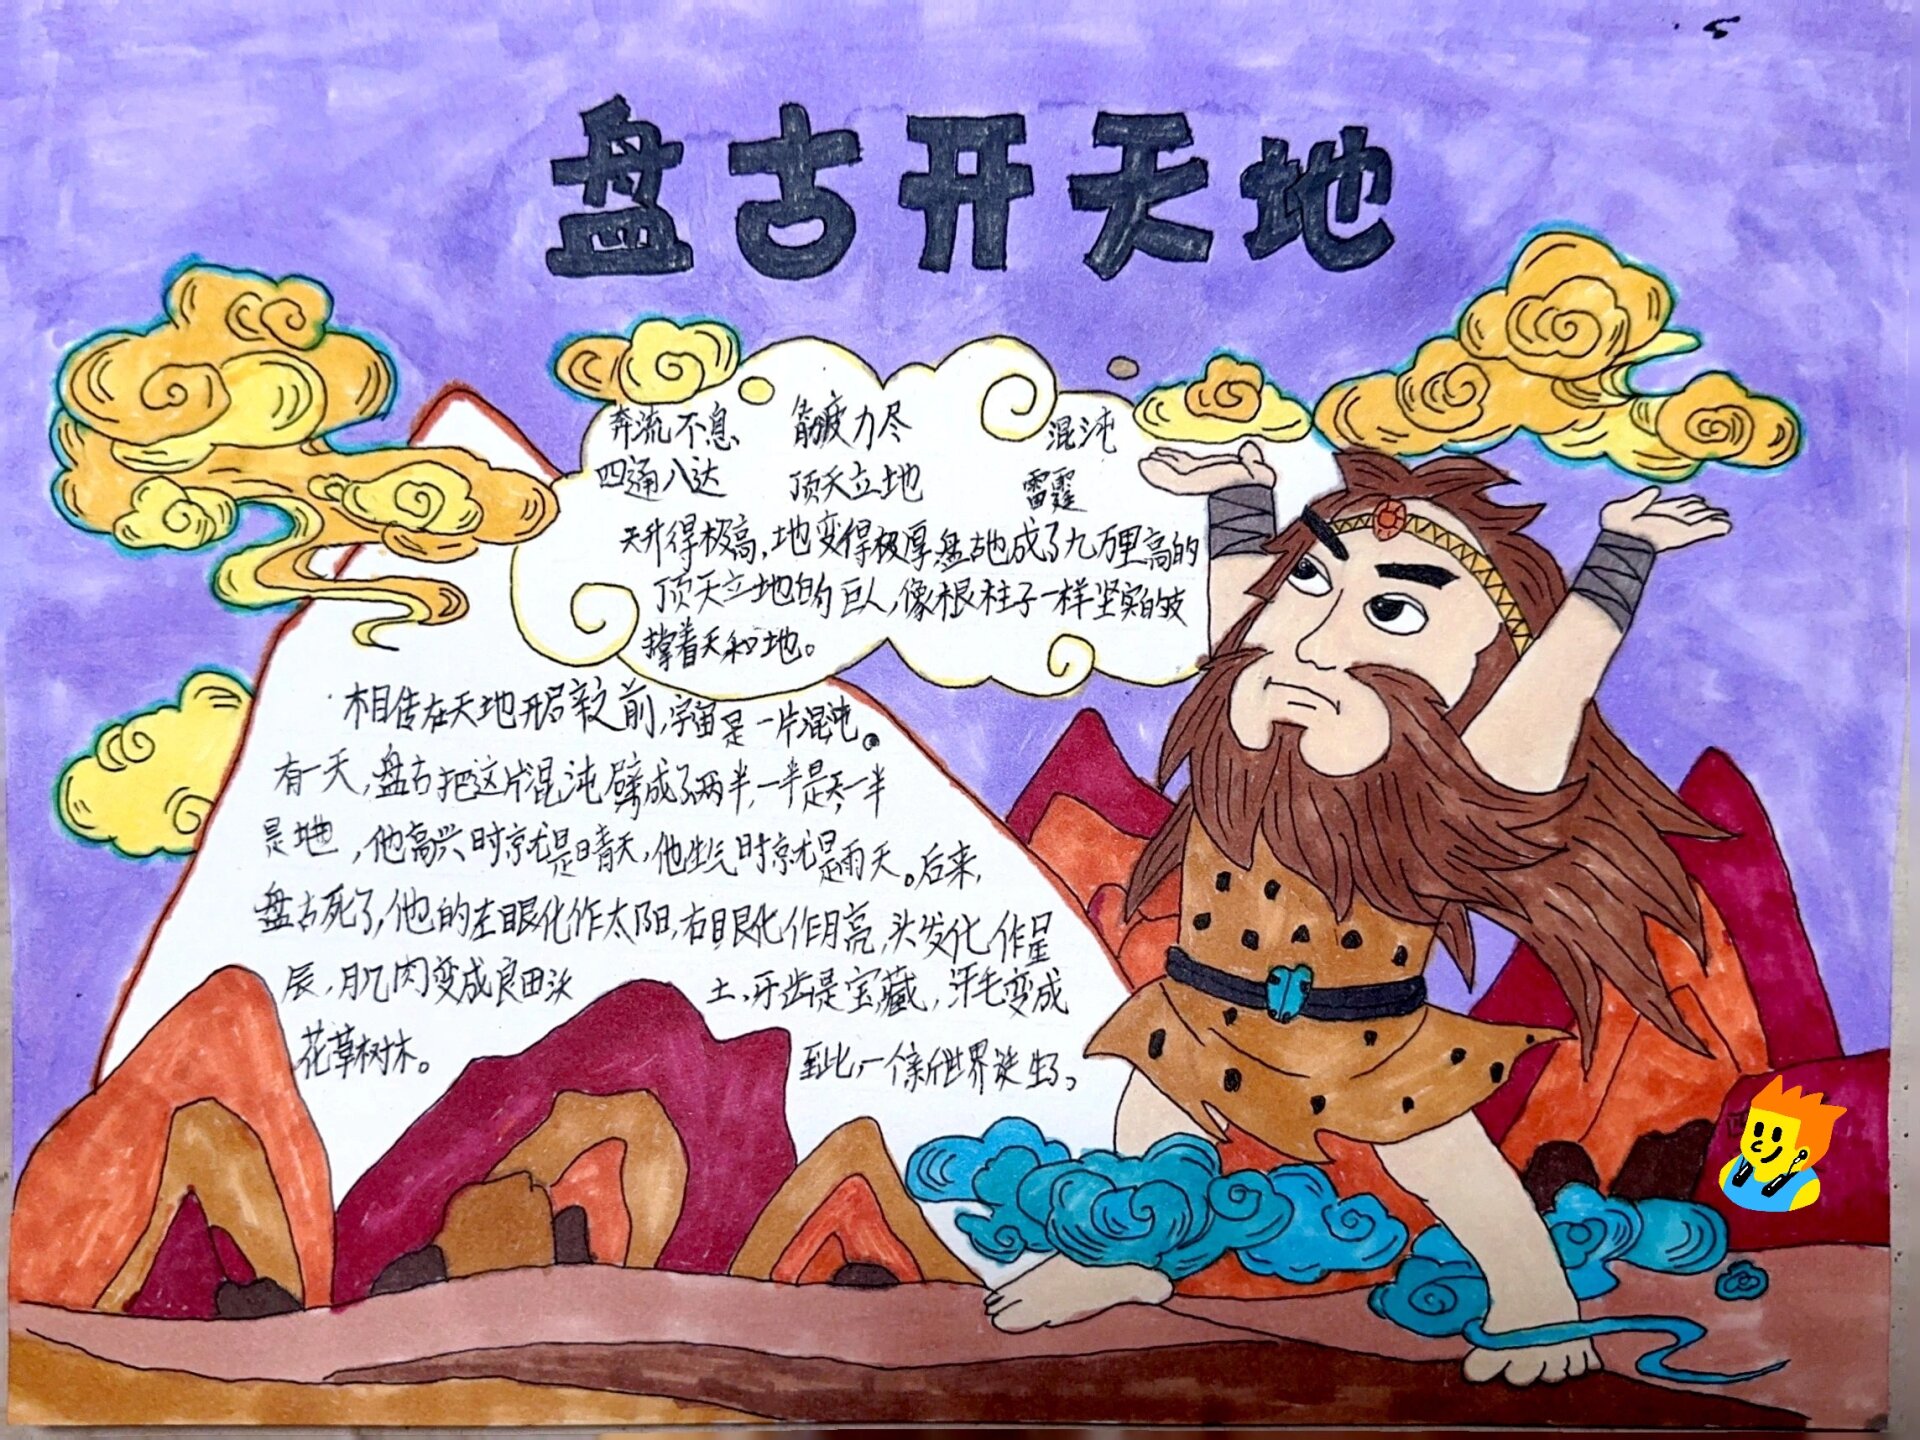 盘古开天地
奔流不息 筋疲力尽 混沌
四通八达 顶天立地 雷霆
天升得极高，地变得极厚盘古也成了九万里高的
顶天立地的巨人，像根柱子一样坚实的支
撑着天和地。
相传在天地形成之前，宇宙是一片混沌。
有一天，盘古把这片混沌劈成了两半，一半是天一半
是地，他高兴时就是晴天，他生气时就是雨天。后来，
盘古死了，他的左眼化作太阳，右眼化作月亮，头发化作星
辰，肌肉变成良田沃 土，牙齿是宝藏，汗毛变成
花草树木。 至此，一个新世界诞生了。